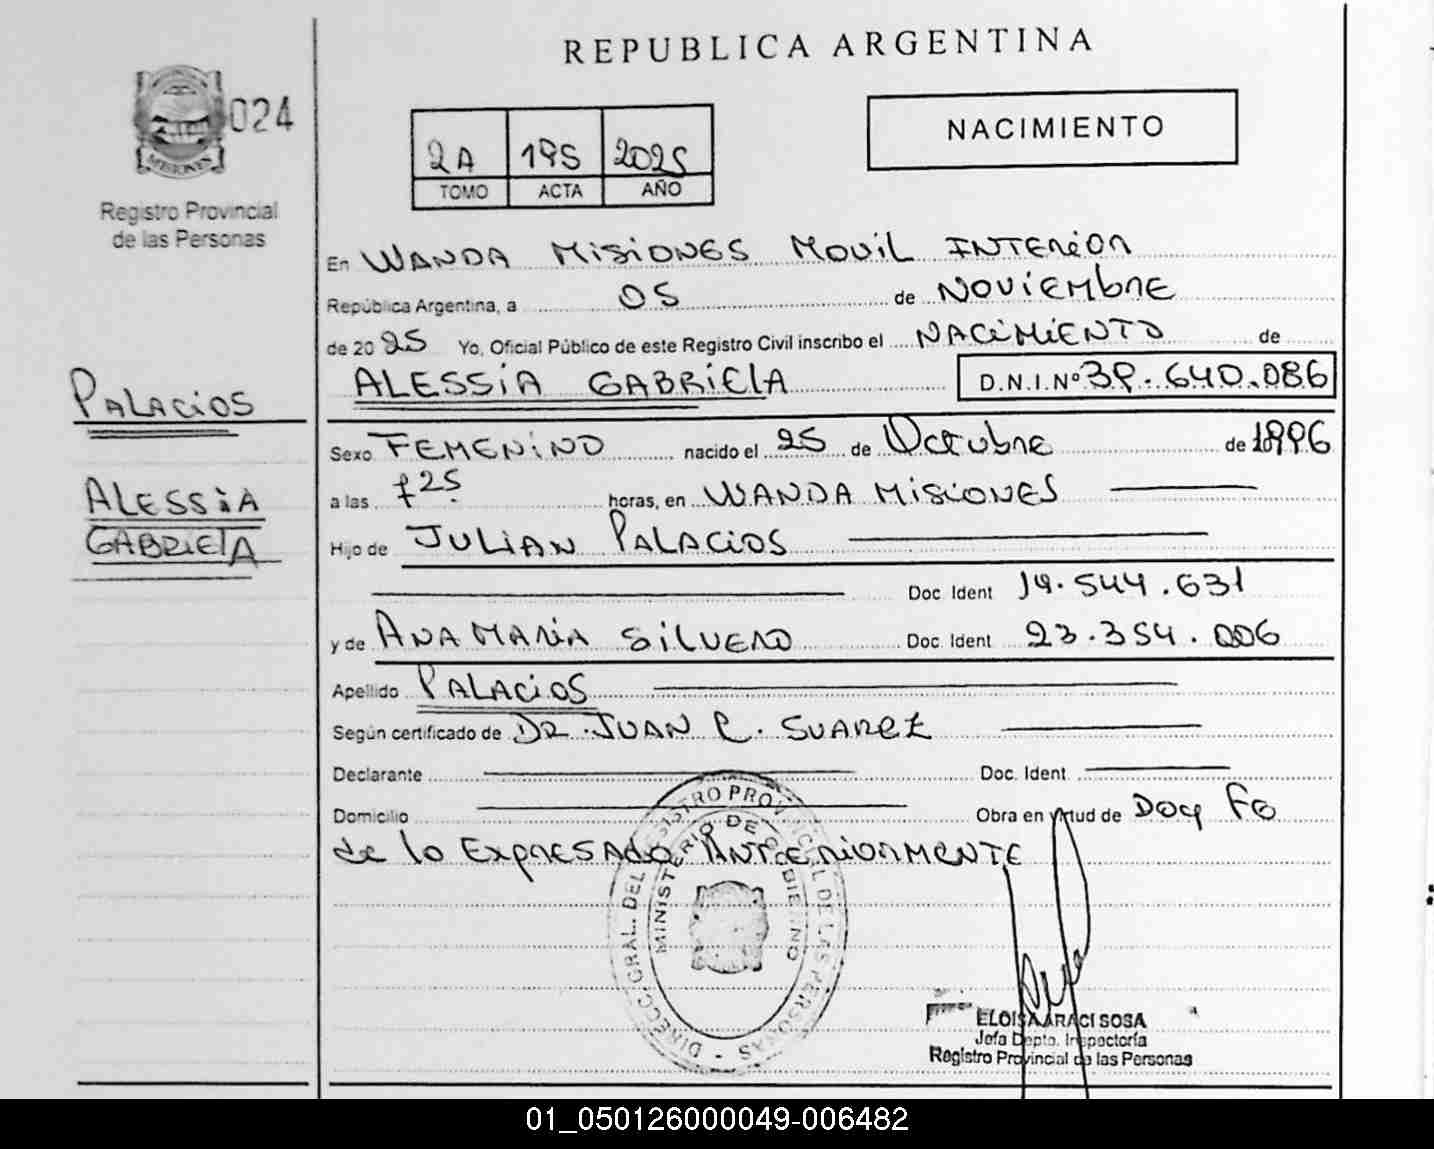 REPUBLICA ARGENTINA
024
MISIONES
Registro Provincial
de las Personas
2A 195 2025
TOMO ACTA AÑO
NACIMIENTO
En WANDA MISIONES MOVIL INTERIOR
República Argentina, a 05 de NOVIEMBRE
de 2025 Yo, Oficial Público de este Registro Civil inscribo el NACIMIENTO de
ALESSIA GABRIELA D.N.I.Nº 39.640.086
PALACIOS
ALESSIA
GABRIELA
Sexo FEMENINO nacido el 25 de Octubre de 1996
a las 725 horas, en WANDA MISIONES
Hijo de JULIAN PALACIOS
Doc. Ident 14.544.631
y de ANA MARIA SILVERO Doc. Ident 23.354.006
Apellido PALACIOS
Según certificado de DR. JUAN C. SUAREZ
Declarante Doc. Ident
Domicilio Obra en virtud de Doy Fe
de lo EXPRESADO ANTERIORMENTE
DIRECC. GRAL. DEL REGISTRO PROVINCIAL DE LAS PERSONAS
MINISTERIO DE GOBIERNO
ELOISA ARACI SOSA
Jefa Depto. Inspectoría
Registro Provincial de las Personas
01_050126000049-006482